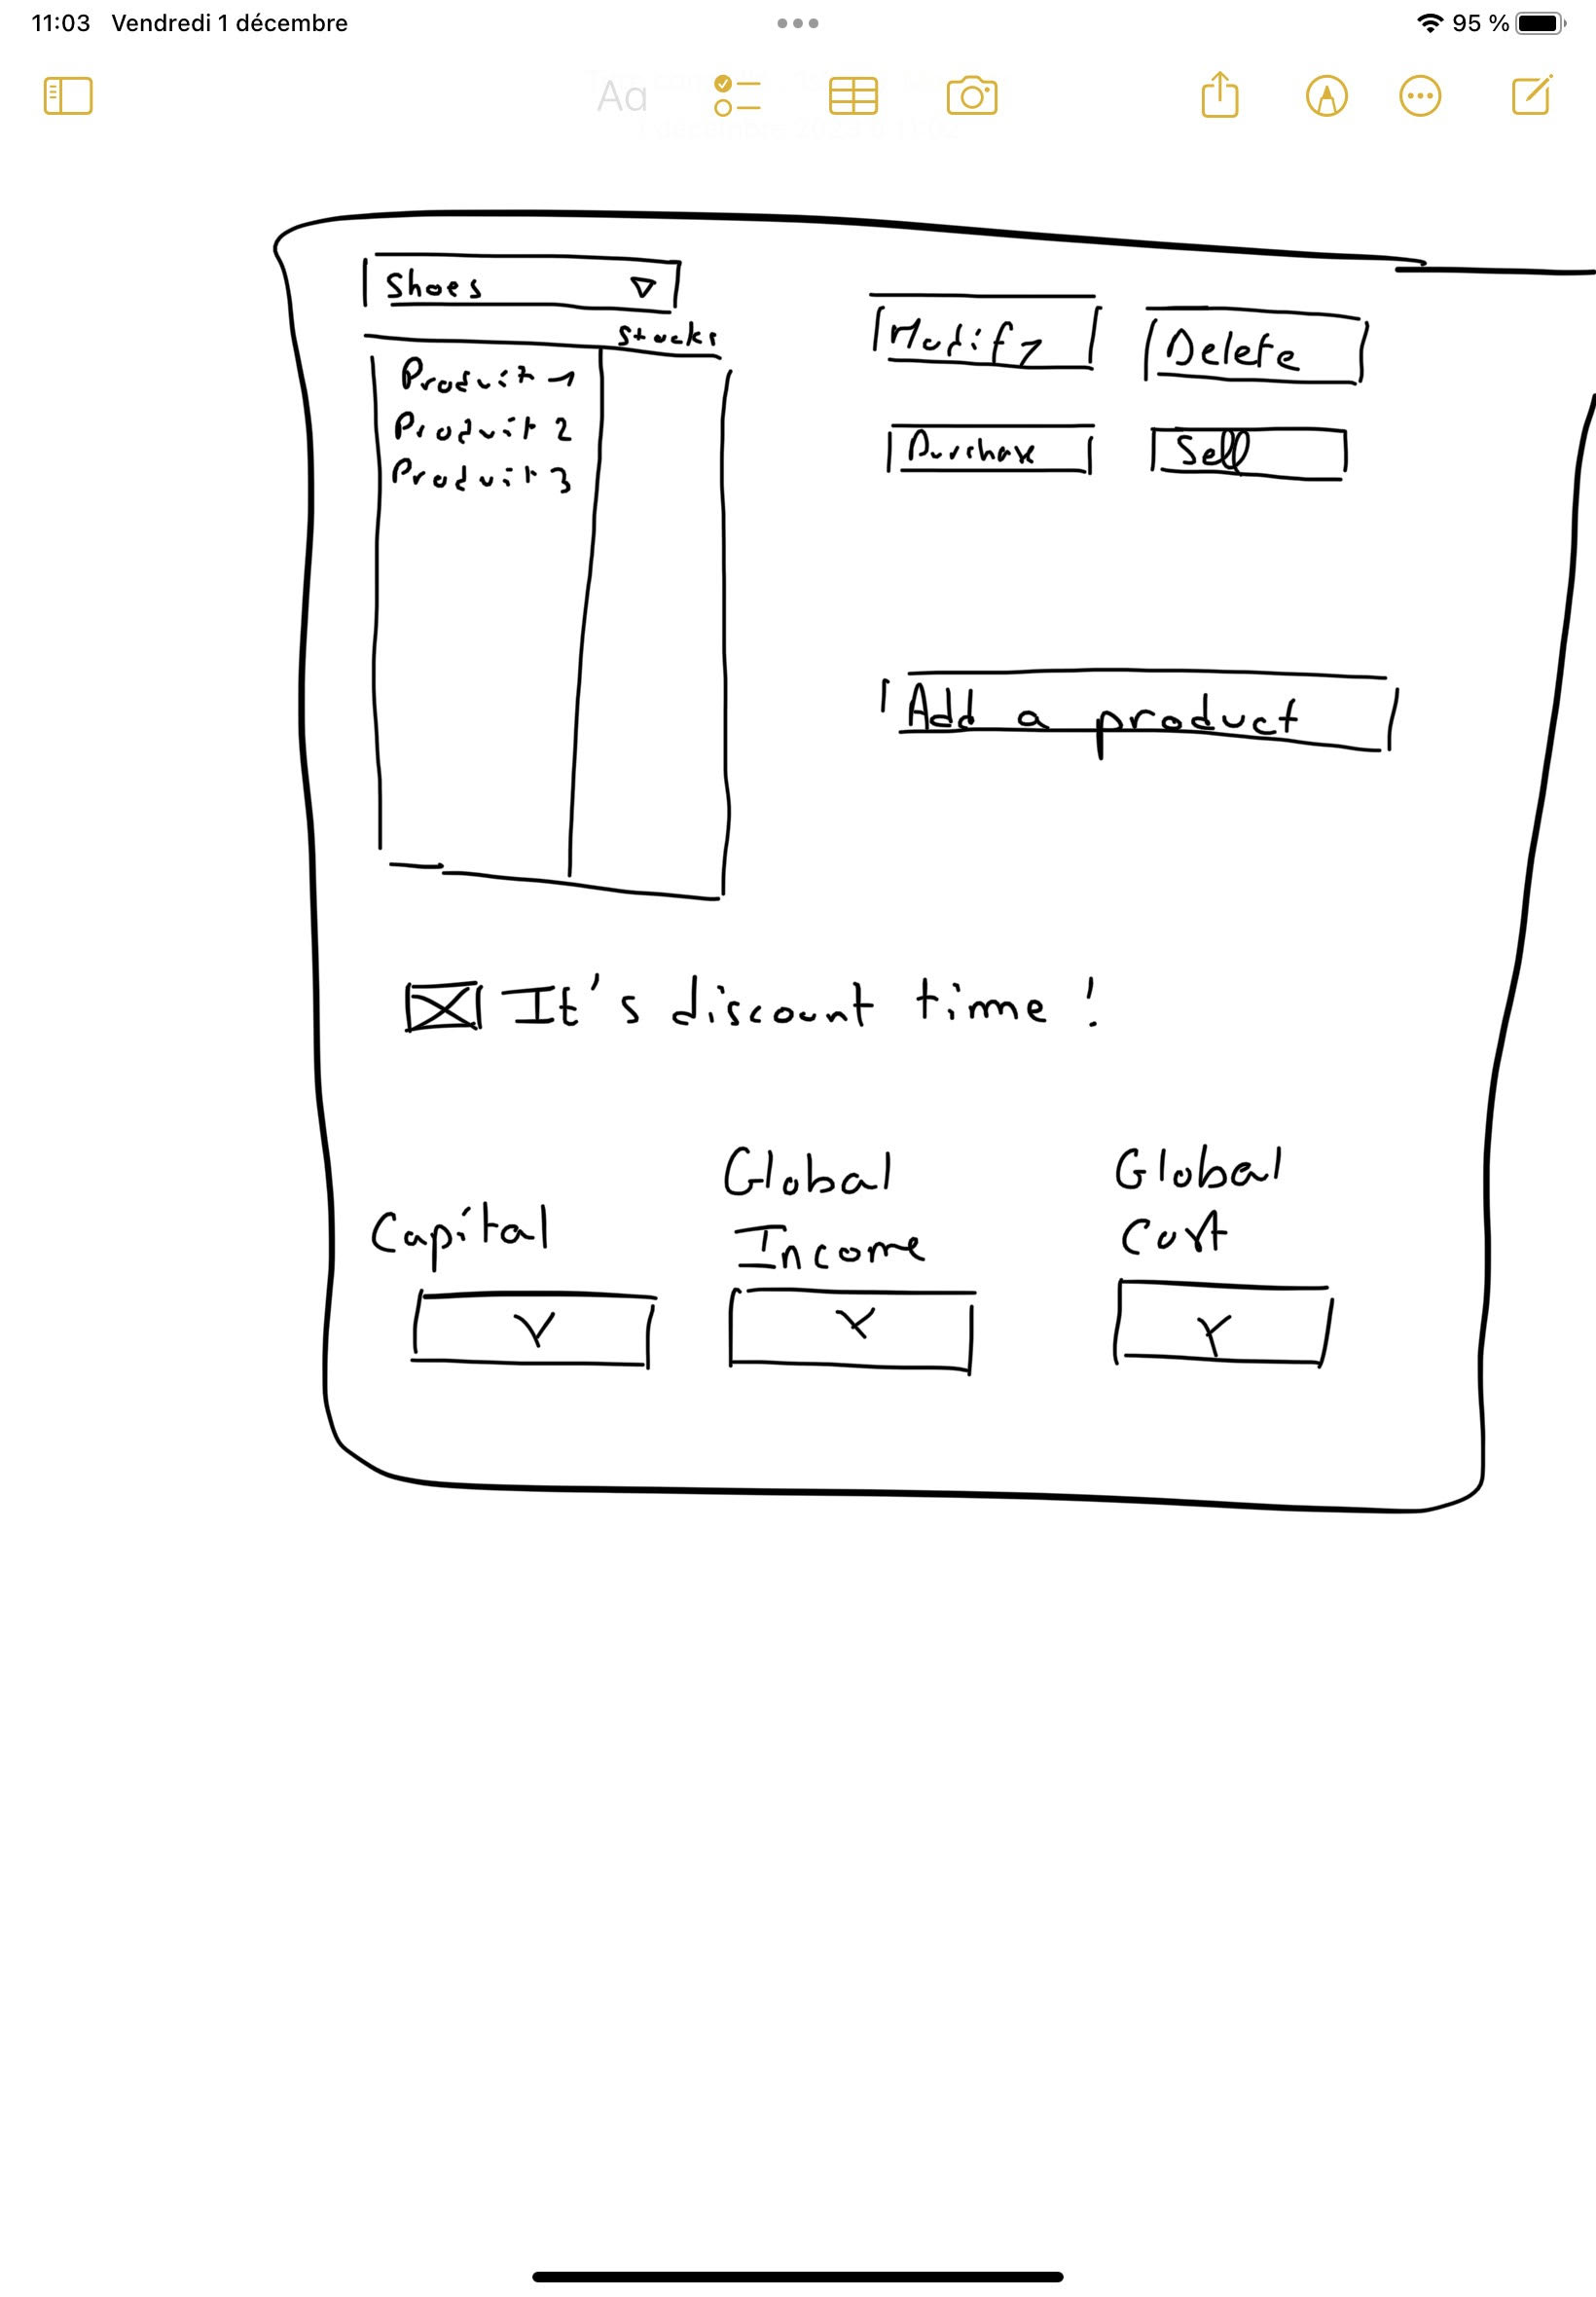 11:03 Vendredi 1 décembre
95 %
Aa
Shoes
Stocks
Produit 1
Produit 2
Produit 3
Modify
Delete
Purchase
Sell
Add a product
It's discount time !
Capital
Global
Income
Global
Cost
Y
Y
Y